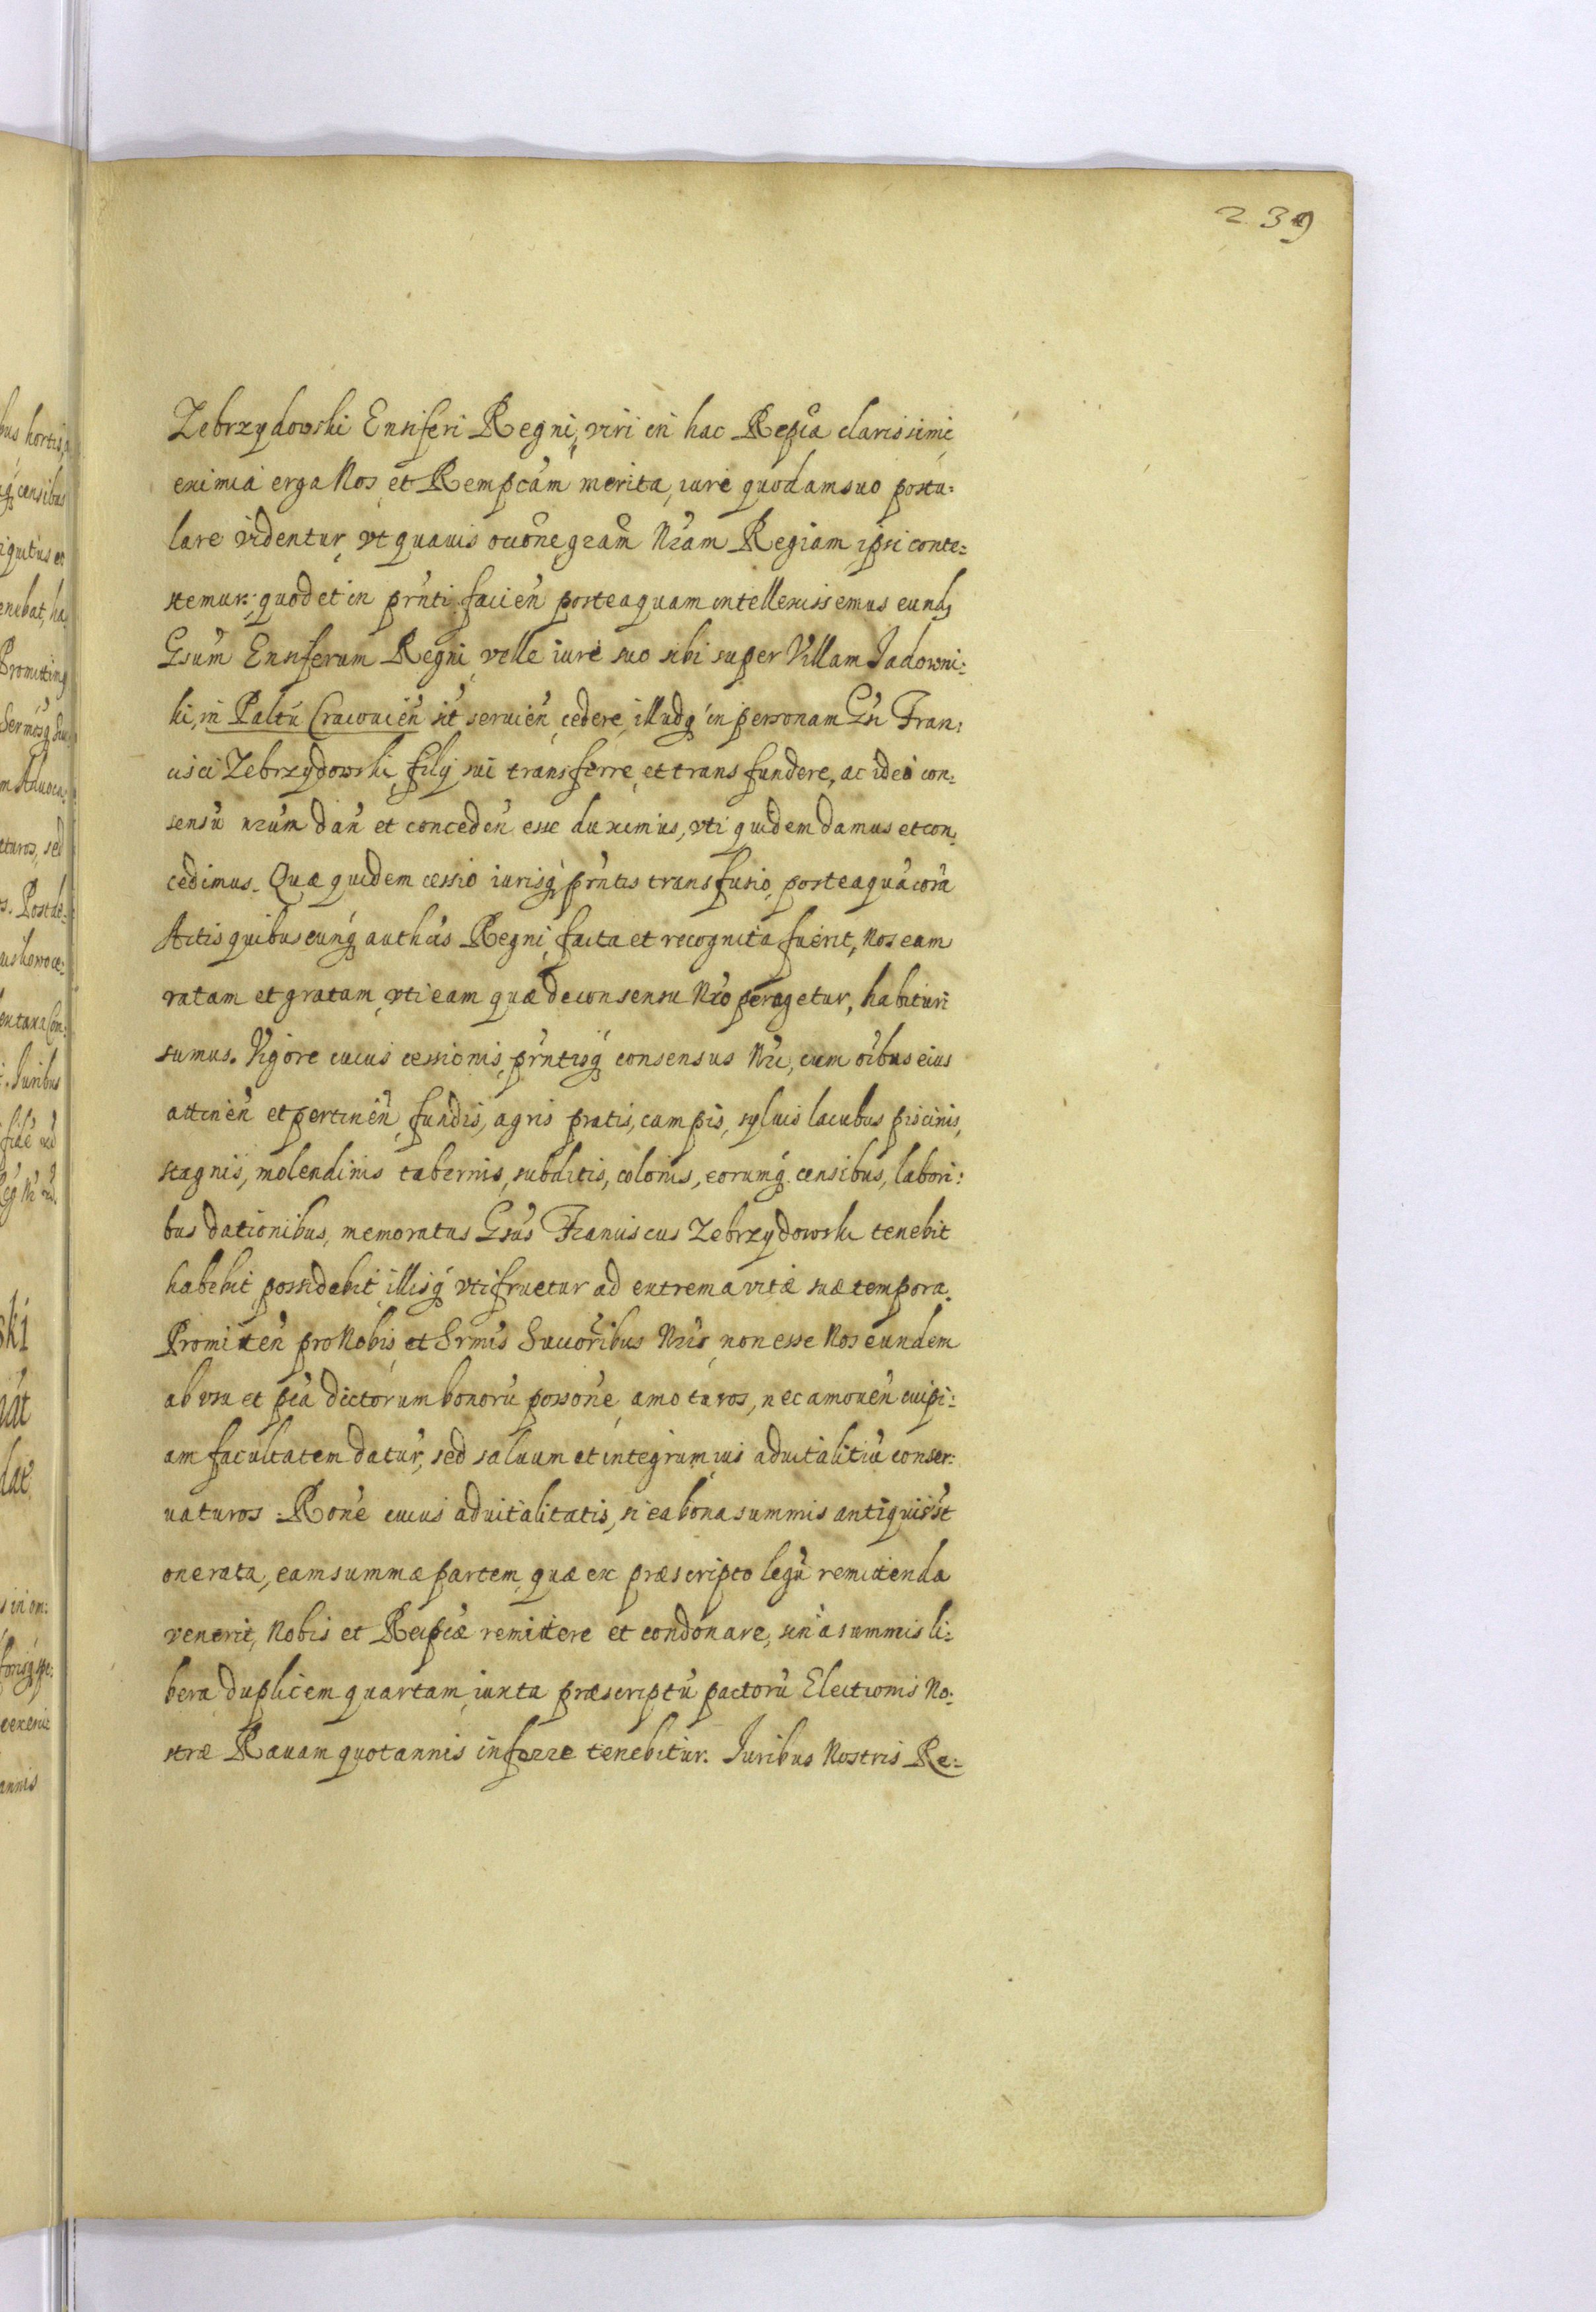 239
Zebrzydowski Ensiferi Regni, viri in hac Repca clarissimi,
eximia erga Nos et Rempcam merita, iure quodam suo postu:
lare videntur, vt quavis occone gram Nram Regiam ipsi conte:
stemur: quod et in prnti facien posteaquam intellexissemus eund,
Gsum Ensiferum Regni velle iure suo sibi super Villam Jadowni:
ki, in Paltu Cracovien sit servien, cedere, illudq in personam Gsi Fran:
cisci Zebrzydowski filij sui transferre, et transfundere, ac ideo con:
sensu nrum dan et conceden esse duximus, vti quidem damus et con:
cedimus. Quæ quidem cessio iurisq prntis transfusio, posteaqua cora
Actis quibuscunq authcis Regni, facta et recognita fuerit, Nos eam
ratam et gratam, vti eam quæ de consensu Nro peragetur, habituri
sumus. Vigore cuius cessionis, prntisq consensus Nri, cum oibus eius
attinen et pertinen, fundis, agris pratis, campis, sylvis lacubus piscinis,
stagnis, molendinis tabernis, subditis, colonis, eorumq censibus, labori:
bus dationibus, memoratus Gsus Franciscus Zebrzydowski tenebit
habebit, possidebit, illisq vtifruetur ad extrema vitæ suæ tempora.
Promitten pro Nobis et Srmis Succoribus Nris, non esse Nos eundem
ab vsu et pca dictorum bonoru possone, amoturos, nec amoven cuipi:
am facultatem datur, sed salvum et integrum ius advitalitiu conser:
vaturos. Rone cuius advitalitatis, si ea bona summis antiquis st
onerata, eam summæ partem, quæ ex præscripto legu remittenda
venerit, Nobis et Reipcæ remittere et condonare, sin a summis li:
bera duplicem quartam, iuxta præscriptu pactoru Electionis No:
stræ Ravam quotannis inferre tenebitur. Juribus Nostris Re: